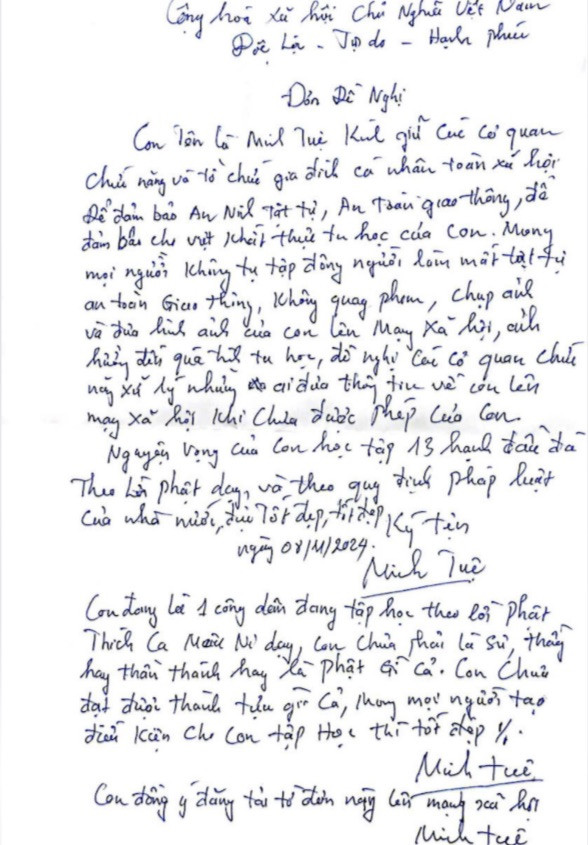 Cộng hoà xã hội Chủ Nghĩa Việt Nam
Độc Lập - Tự do - Hạnh phúc
Đơn Đề Nghị
Con Tên là Minh Tuệ Kính giử Các cơ quan
chức năng và tổ chức gia đình cá nhân toàn xã hội
Để đảm bảo An Ninh Tật tự, An Toàn giao thông, để
đảm bảo cho việt khất thực tu học của Con. Mong
mọi người không tụ tập đông người làm mất tật tự
an toàn Giao thông, không quay phim, chụp ảnh
và đưa hình ảnh của con lên Mạng Xã hội, ảnh
hưởng đến quá trình tu học, đề nghị Các cơ quan chức
năng xử lý những ai đưa thông tin về con lên
mạng xã hội khi chưa được phép Của Con.
Nguyện vọng của Con học tập 13 hạnh đầu đà
Theo lời phật dạy, và theo quy định pháp luật
Của nhà nước, tốt đẹp, tốt đẹp Ký tên
ngày 08/11/2024.
Minh Tuệ
Con đang là 1 công dân đang tập học theo lời phật
Thích Ca Mâu Ni dạy, con chưa phải là sư, thầy
hay thần thánh hay là phật gì cả. Con chưa
đạt được thành tựu gì cả, mong mọi người tạo
điều kiện cho con tập học thì tốt đẹp ./.
Minh Tuê
Con đồng ý đăng tải tờ đơn này lên mạng xã hội
Minh tuê